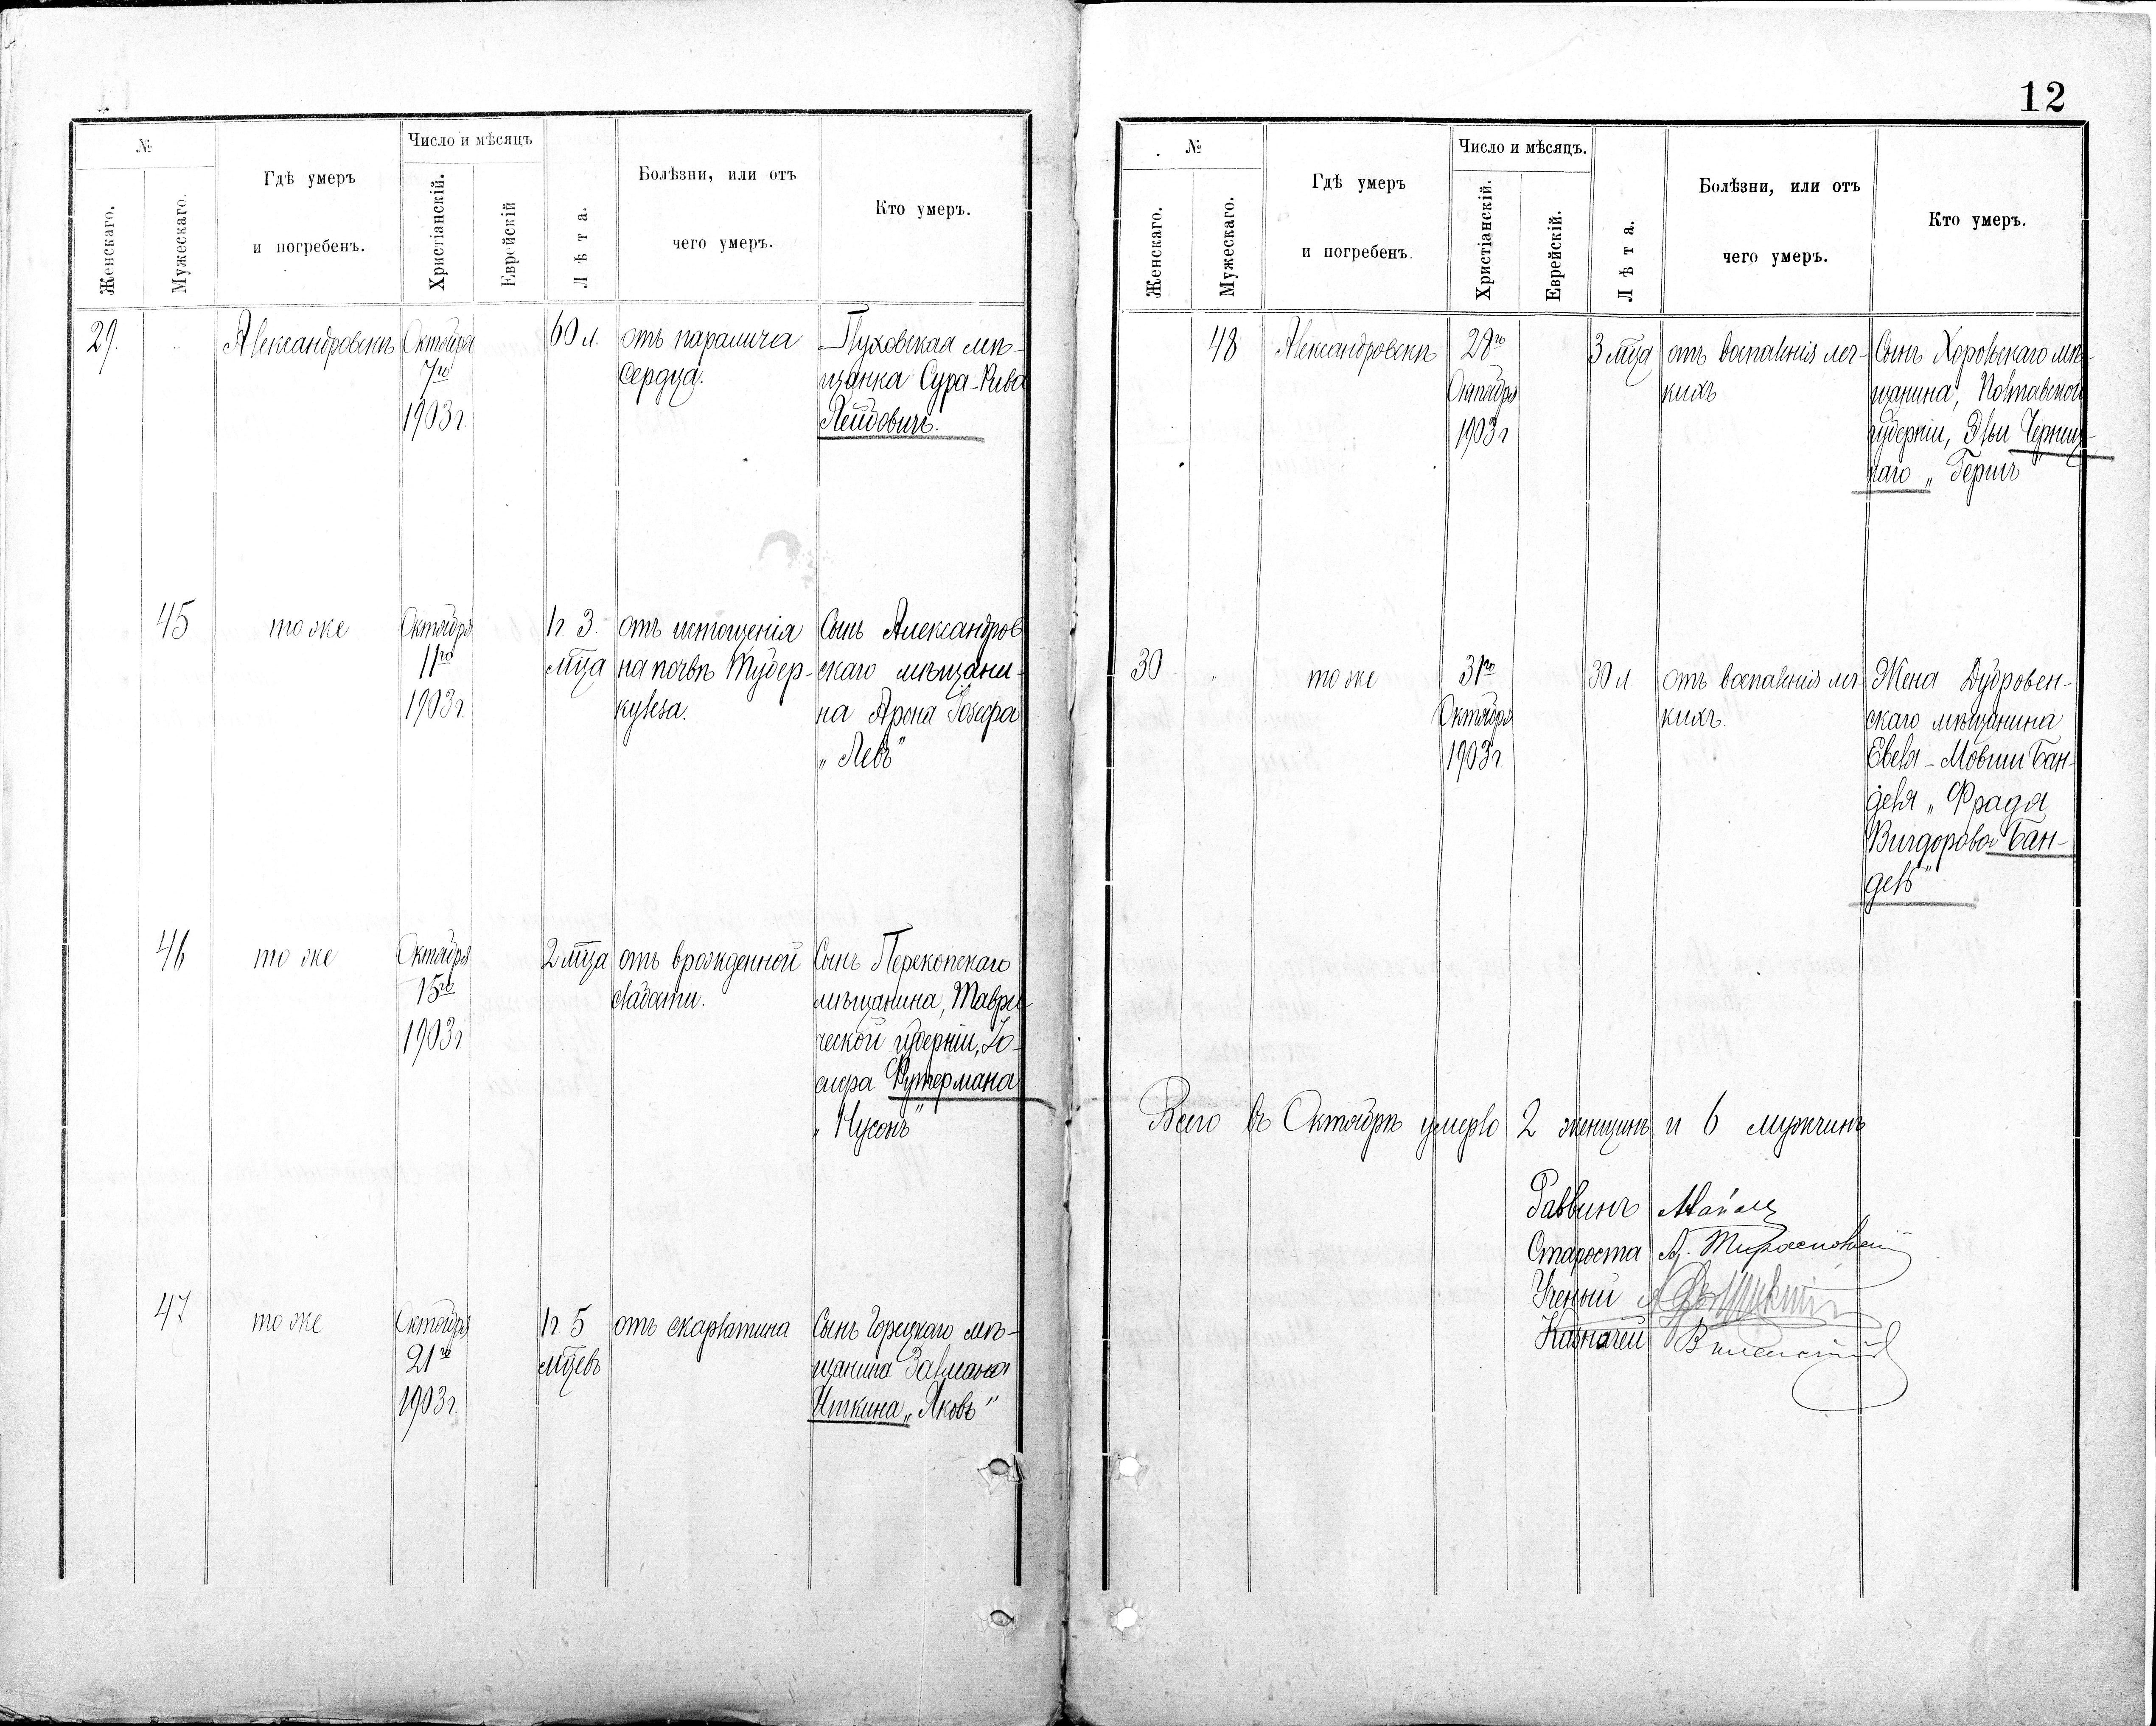 №
Женскаго.
Мужескаго.
Гдѣ умеръ
и погребенъ.
Число и мѣсяцъ
Христіанскій.
Еврейскій
Лѣта.
Болѣзни, или отъ
чего умеръ.
Кто умеръ.
29.
Александровскъ
Октября
7го
1903 г.
60 л.
отъ паралича
сердца.
Пуховская мѣ-
щанка Сура-Рива
Лейдовичъ.
45
то же
Октября
11го
1903 г.
1 г. 3.
м-ца
отъ истощенія
на почвѣ тубер-
кулеза.
Сынъ Александров
скаго мѣщани-
на Арона Іозефа
„Левъ“
46
то же
Октября
15го
1903 г.
2 м-ца
отъ врожденной
слабости.
Сынъ Перекопскаго
мѣщанина, Таври-
ческой губерніи, Іо-
сифа Футермана
„Нусонъ“
47
то же
Октября
21го
1903 г.
1 г. 5
м-цевъ
отъ скарлатина
Сынъ Горецкаго мѣ-
щанина Залмана
Иткина „Яковъ“
12
№
Женскаго.
Мужескаго.
Гдѣ умеръ
и погребенъ.
Число и мѣсяцъ.
Христіанскій.
Еврейскій.
Лѣта.
Болѣзни, или отъ
чего умеръ.
Кто умеръ.
48
Александровскъ
28го
Октября
1903 г
3 м-ца
отъ воспаленія лег-
кихъ
Сынъ Хорольскаго мѣ-
щанина, Полтавской
губерніи, Эльи
наго „Гершъ“
30
то же
31го
Октября
1903 г.
30 л.
отъ воспаленія лег-
кихъ.
Жена Дубровен-
скаго мѣщанина
Евеля-Мовши Бан-
деля „Фрада
Вигдорова Бан-
дель“
Всего въ Октябрѣ умерло 2 женщинъ и 6 мужчинъ
Раввинъ
Староста А. Тираспольскій
Ученый
Казначей Виленскій